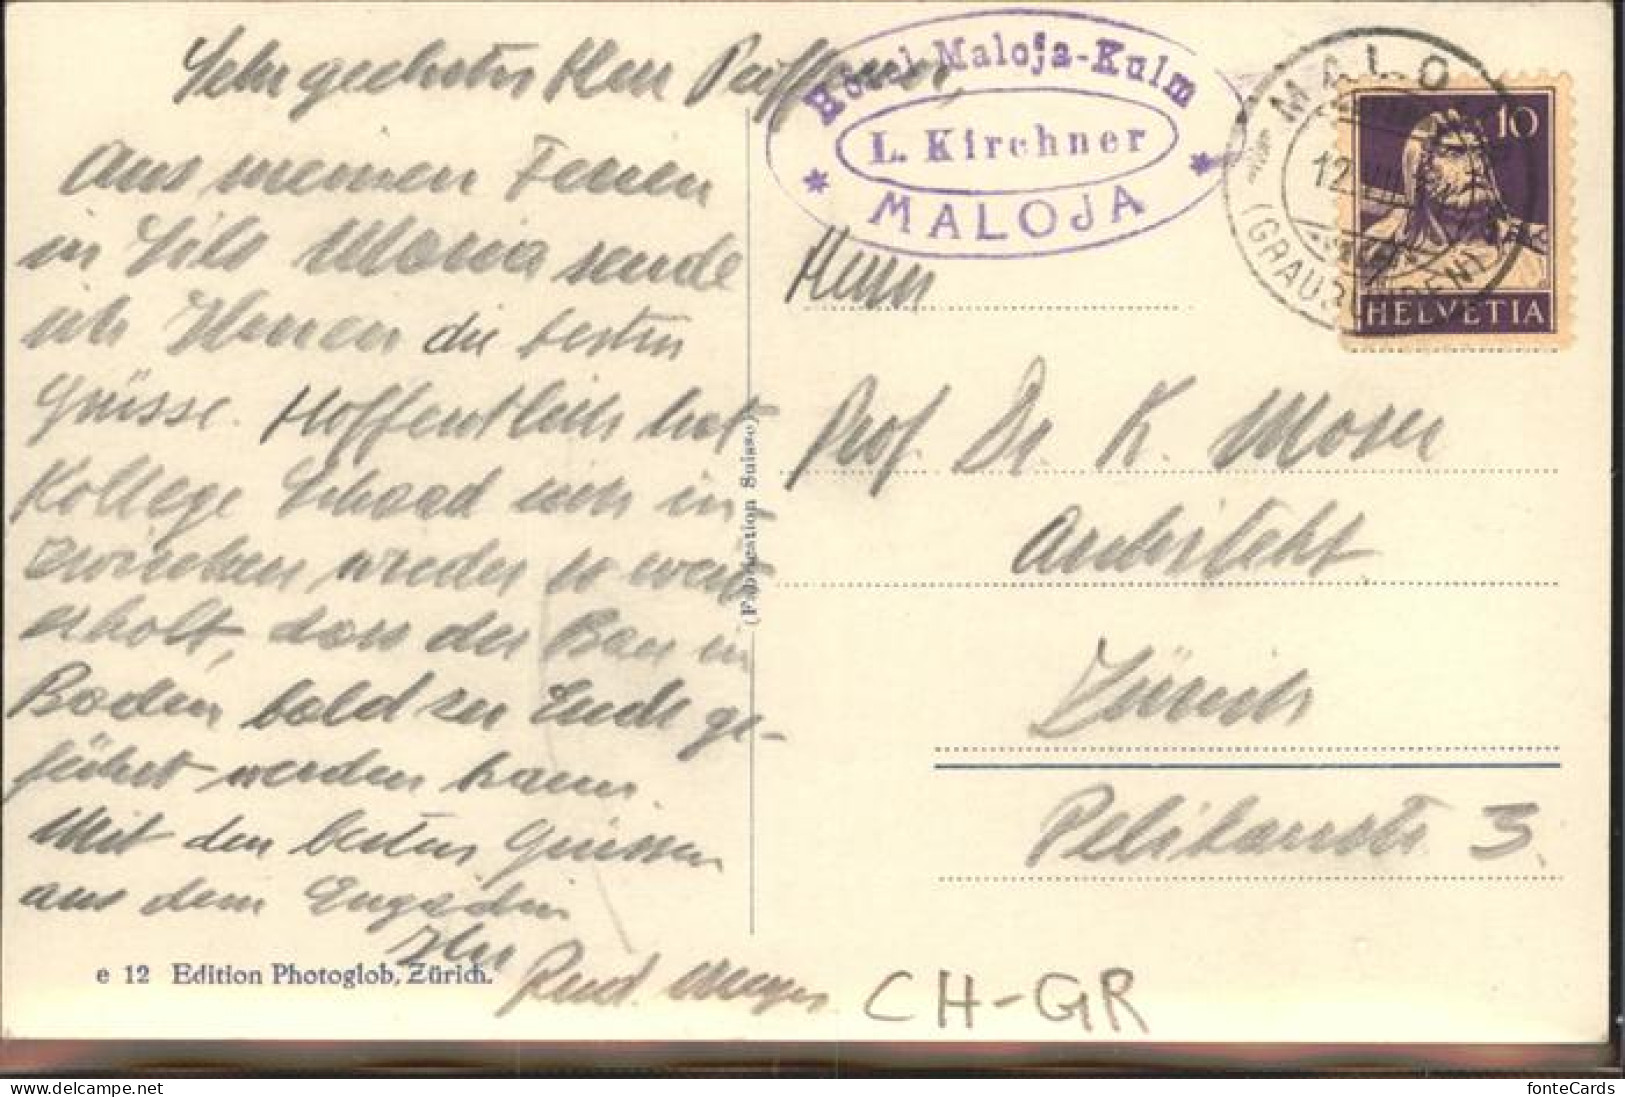 Sehr geehrter Herr Professor,
Aus meinen Ferien
in Sils Maria sende
ich Ihnen die besten
Grüsse. Hoffentlich hat
Kollege Schaad sich in-
zwischen wieder so weit
erholt, dass der Bau in
Baden bald zu Ende ge-
führt werden kann.
Mit den besten Grüssen
aus dem Engadin
Ihr
Rud. Meyer.
e 12 Edition Photoglob, Zürich.
(Fabrication Suisse)
Hôtel Maloja-Kulm
L. Kirchner
* MALOJA *
MALO
12
(GRAUBÜNDEN)
10
HELVETIA
Herrn
Prof. Dr. K. Moser
Architekt
Zürich
Pelikanstr 3.
CH-GR
fonteCards
www.delcampe.net